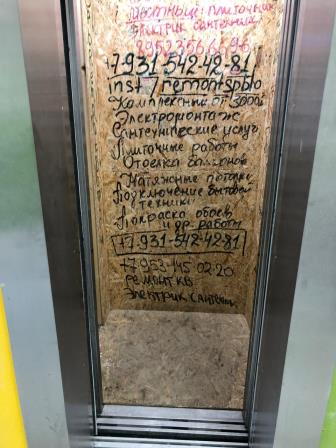 местный: плиточник
Электрик сантехник
89523566696
+7-931-542-42-81
inst/remontspblo
Комплексные от 3000
Электромонтаж
Сантехнические услуг
Плиточные работы
Отделка балконов
Натяжные потолки
Подключение бытовой
техники
Покраска обоев
и др. работы
+7-931-542-42-81
+7 953-145 02-20
РЕМОНТ КВ
Электрик сантехн